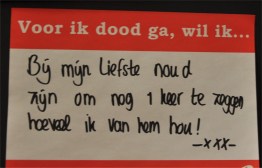 Voor ik dood ga, wil ik...
Bij mijn Liefste noud
zijn om nog 1 keer te zeggen
hoeveel ik van hem hou!
-xxx-